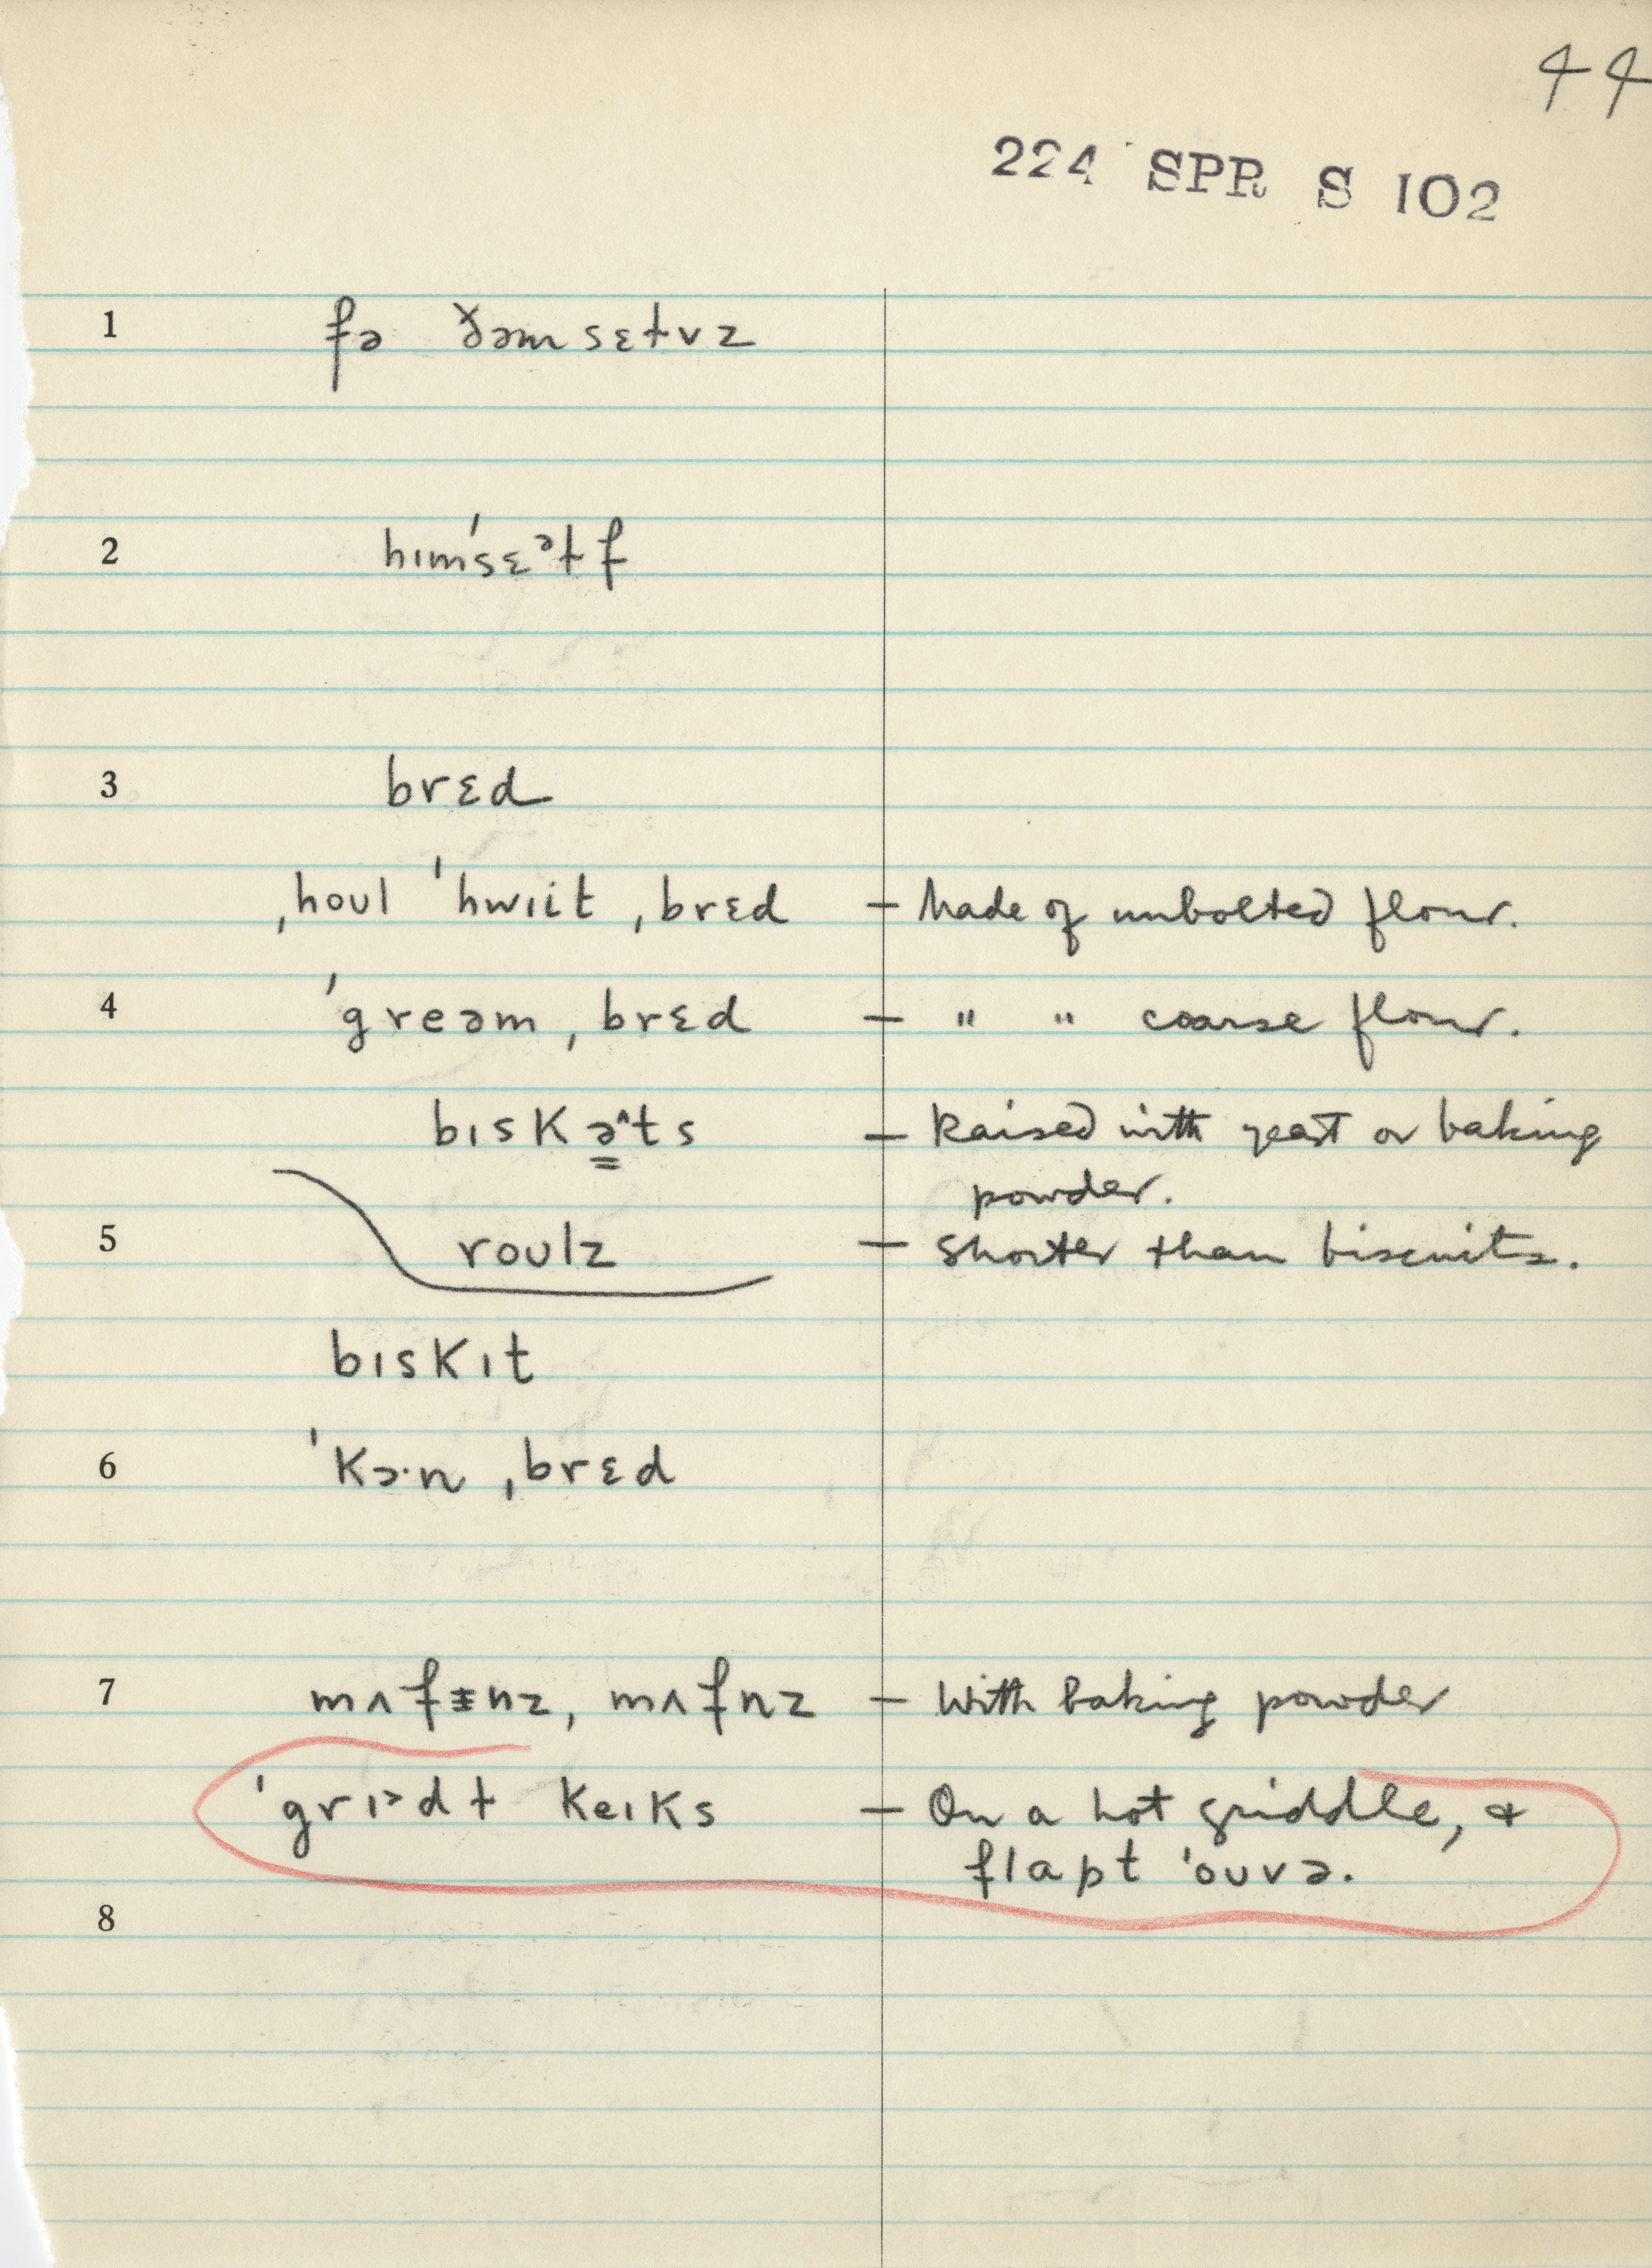 44
224 SPR S 102
1 fə ðəmsɛɫvz
2 hɪm'sɛᵊɫf
3 brɛd
ˌhoʊl 'hwɪit ˌbrɛd – Made of unbolted flour.
4 'greəm ˌbrɛd – " " coarse flour.
bɪskə̳^ts – Raised with yeast or baking
powder.
5 roʊlz – Shorter than biscuits.
bɪskɪt
6 'kɔ·n ˌbrɛd
7 mʌfɪ̵nz, mʌfnz – With baking powder
'grɪᵊdɫ keɪks – On a hot griddle, &
flapt 'oʊvə.
8